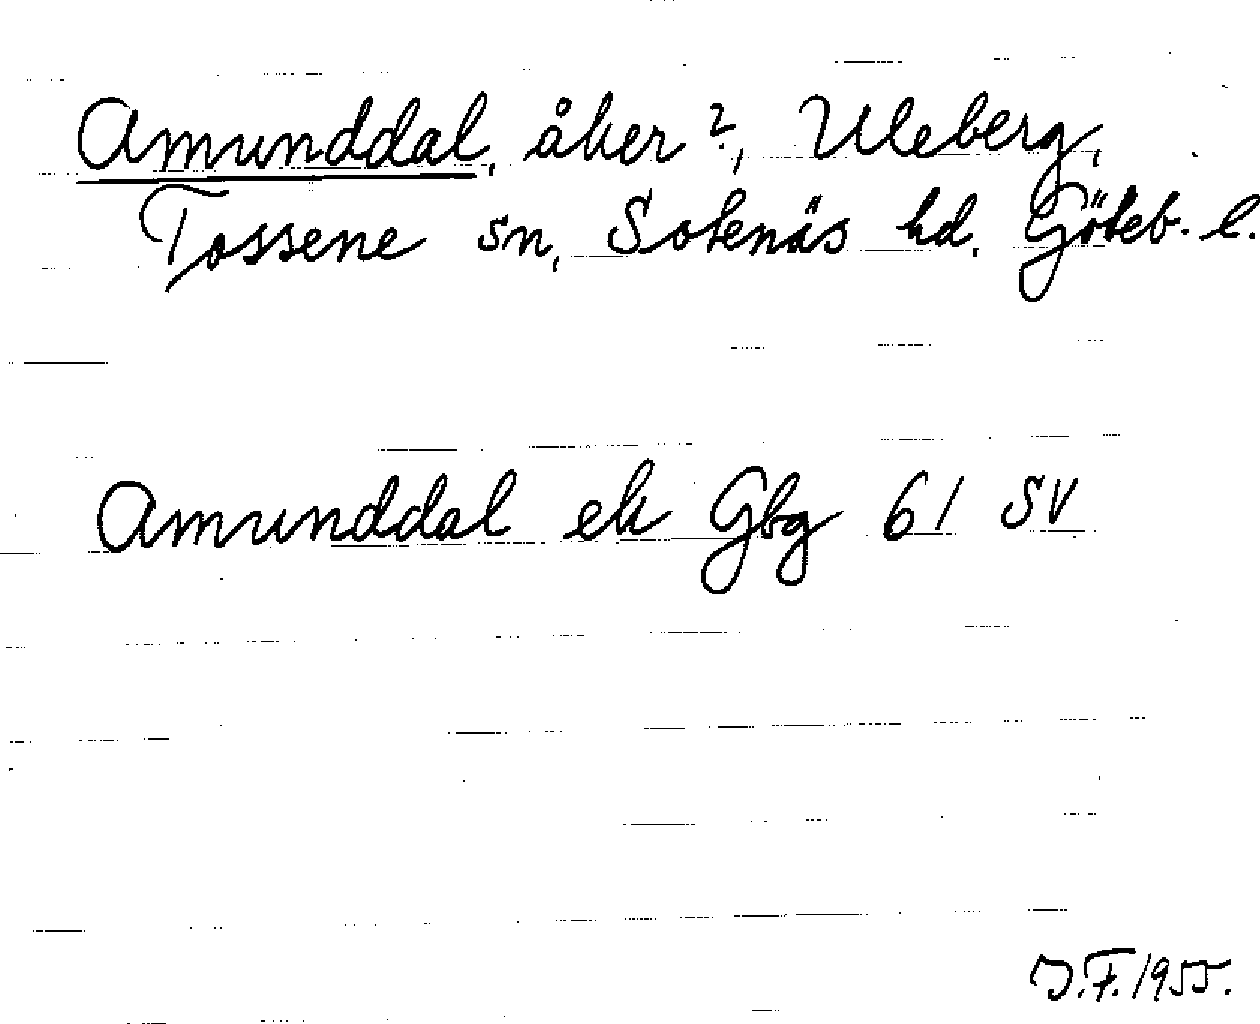 Amunddal, åker?, Uleberg,
Tossene sn, Sotenäs hd. Göteb. l.
Amunddal ek Gbg 61 SV
J.F. 1955.